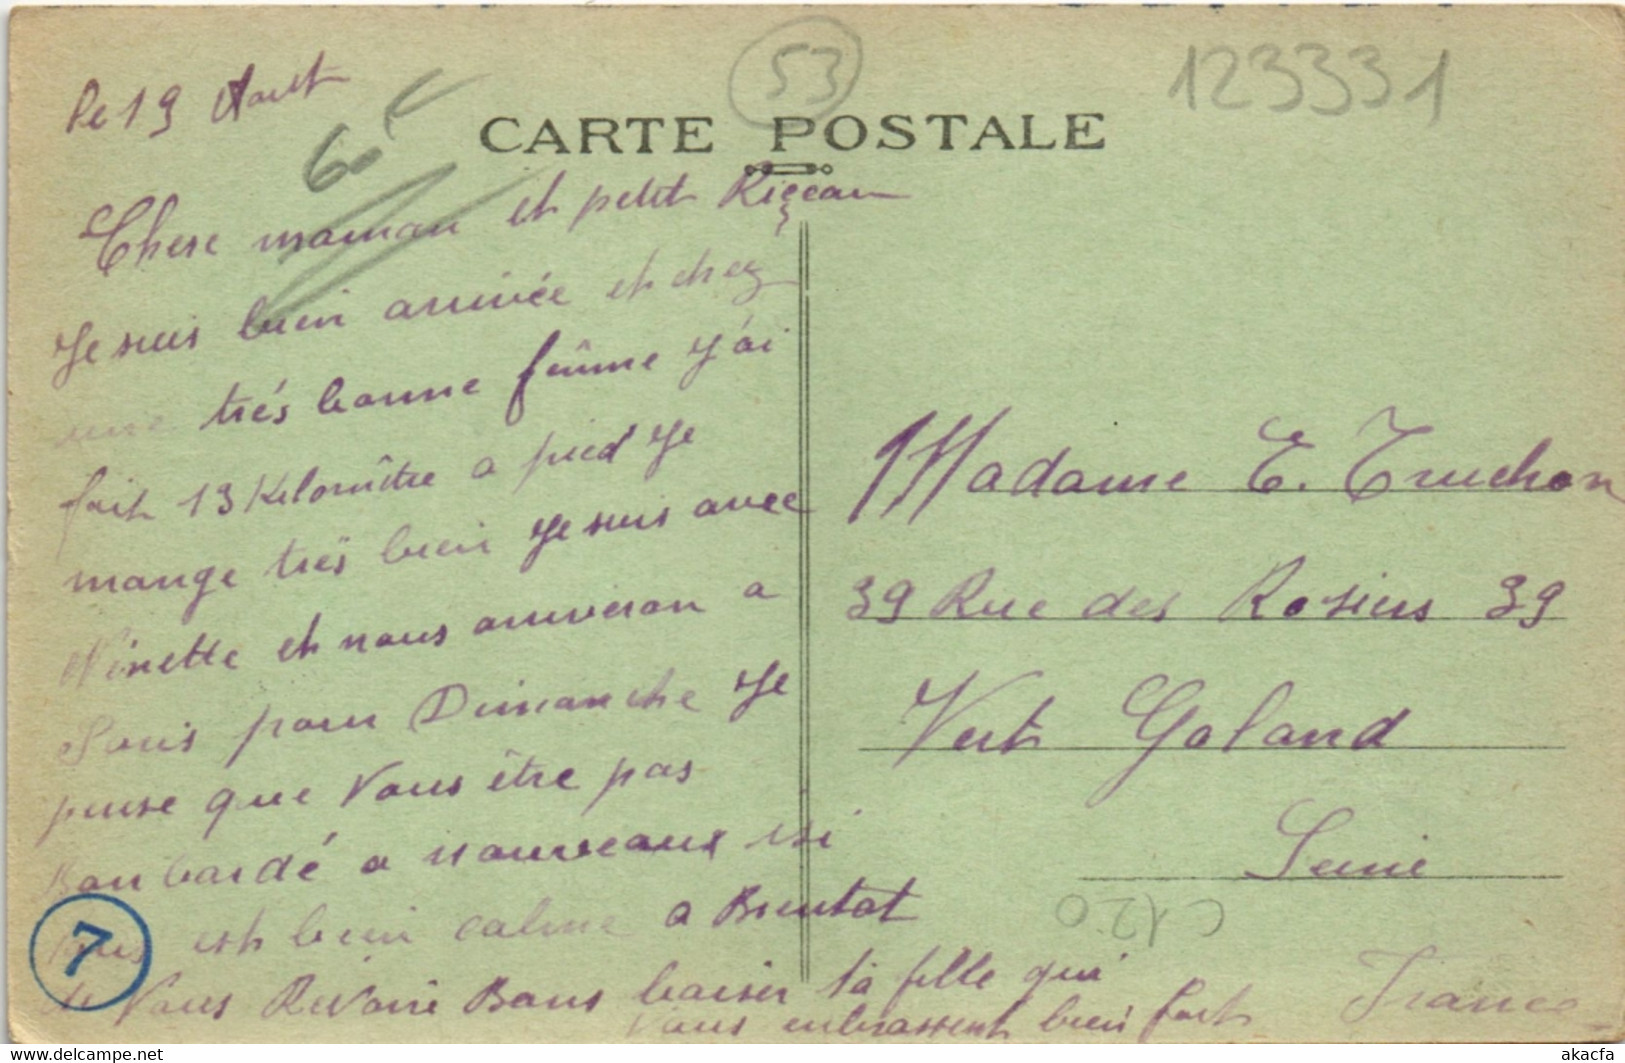 Le 19 Aout
60 F
53
123331
CARTE POSTALE
Chere maman et petit
Je suis bien arrivée et chez
une trés bonne fâmme J'ai
fait 13 Kilomître a pied Je
mange trés bien Je suis avec
Ninette et nous arriveron a
Paris pour Dimanche Je
pense que Vous être pas
Bonbardé a nouveaux isi
tous est bien calme a Bientot
de Vous Revoire Bons baiser ta fille qui
Vous enbrassent bien fort
7
Madame E. Truchon
39 Rue des Rosiers 39
Vert Galand
Seine
C120
France
akacfa
www.delcampe.net